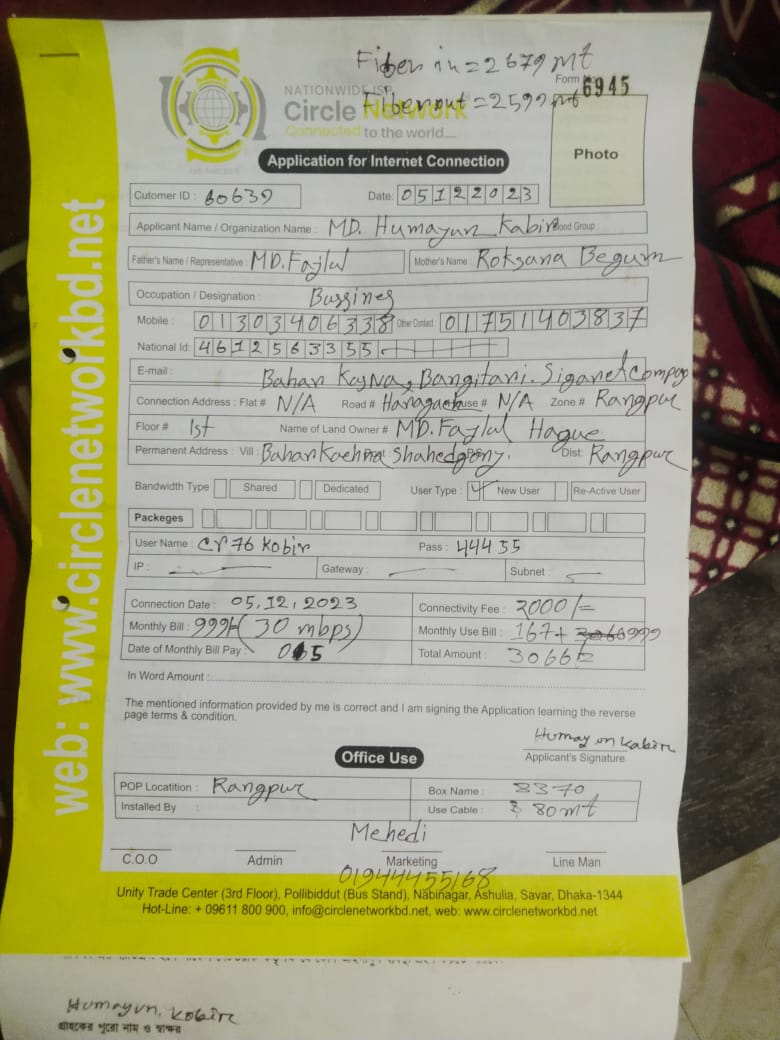 Fiber in = 2679 mt
Form No 6945
NATIONWIDE ISP
Circle Network
Fiber out = 2599 mt
Connected to the world....
Photo
Application for Internet Connection
Cutomer ID : 60639
Date: 05122023
Applicant Name / Organization Name : MD. Humayun Kabir Blood Group :
Father's Name / Representative : MD. Fajlul Mother's Name : Roksana Begum
Occupation / Designation : Bussines
Mobile : 01303406338 Other Contact 01751403837
National Id: 4612563355
E-mail :
Bahan Bangitani.
Connection Address : Flat # N/A Road # Haragach House # N/A Zone # Rangpur
Floor # 1st Name of Land Owner # MD. Fajlul Haque
Permanent Address : Vill : Bahankachna Shahedgonj. Dist: Rangpur
Bandwidth Type Shared Dedicated User Type : New User Re-Active User
Packeges
User Name : cr76kobir Pass : 44455
IP : Gateway : Subnet :
Connection Date : 05.12.2023 Connectivity Fee : 2000/=
Monthly Bill : 999/- (30 mbps) Monthly Use Bill : 167+ 999
Date of Monthly Bill Pay : Total Amount : 3066/=
In Word Amount :
The mentioned information provided by me is correct and I am signing the Application learning the reverse
page terms & condition.
Humayun kabir
Applicant's Signature
Office Use
POP Locatition : Rangpur Box Name : 8370
Installed By : Use Cable : 80 mt
Mehedi
C.O.O Admin Marketing Line Man
01944455168
Unity Trade Center (3rd Floor), Pollibiddut (Bus Stand), Nabinagar, Ashulia, Savar, Dhaka-1344
Hot-Line: + 09611 800 900, info@circlenetworkbd.net, web: www.circlenetworkbd.net
web: www.circlenetworkbd.net
Humayun. Kobir
গ্রাহকের পুরো নাম ও স্বাক্ষর